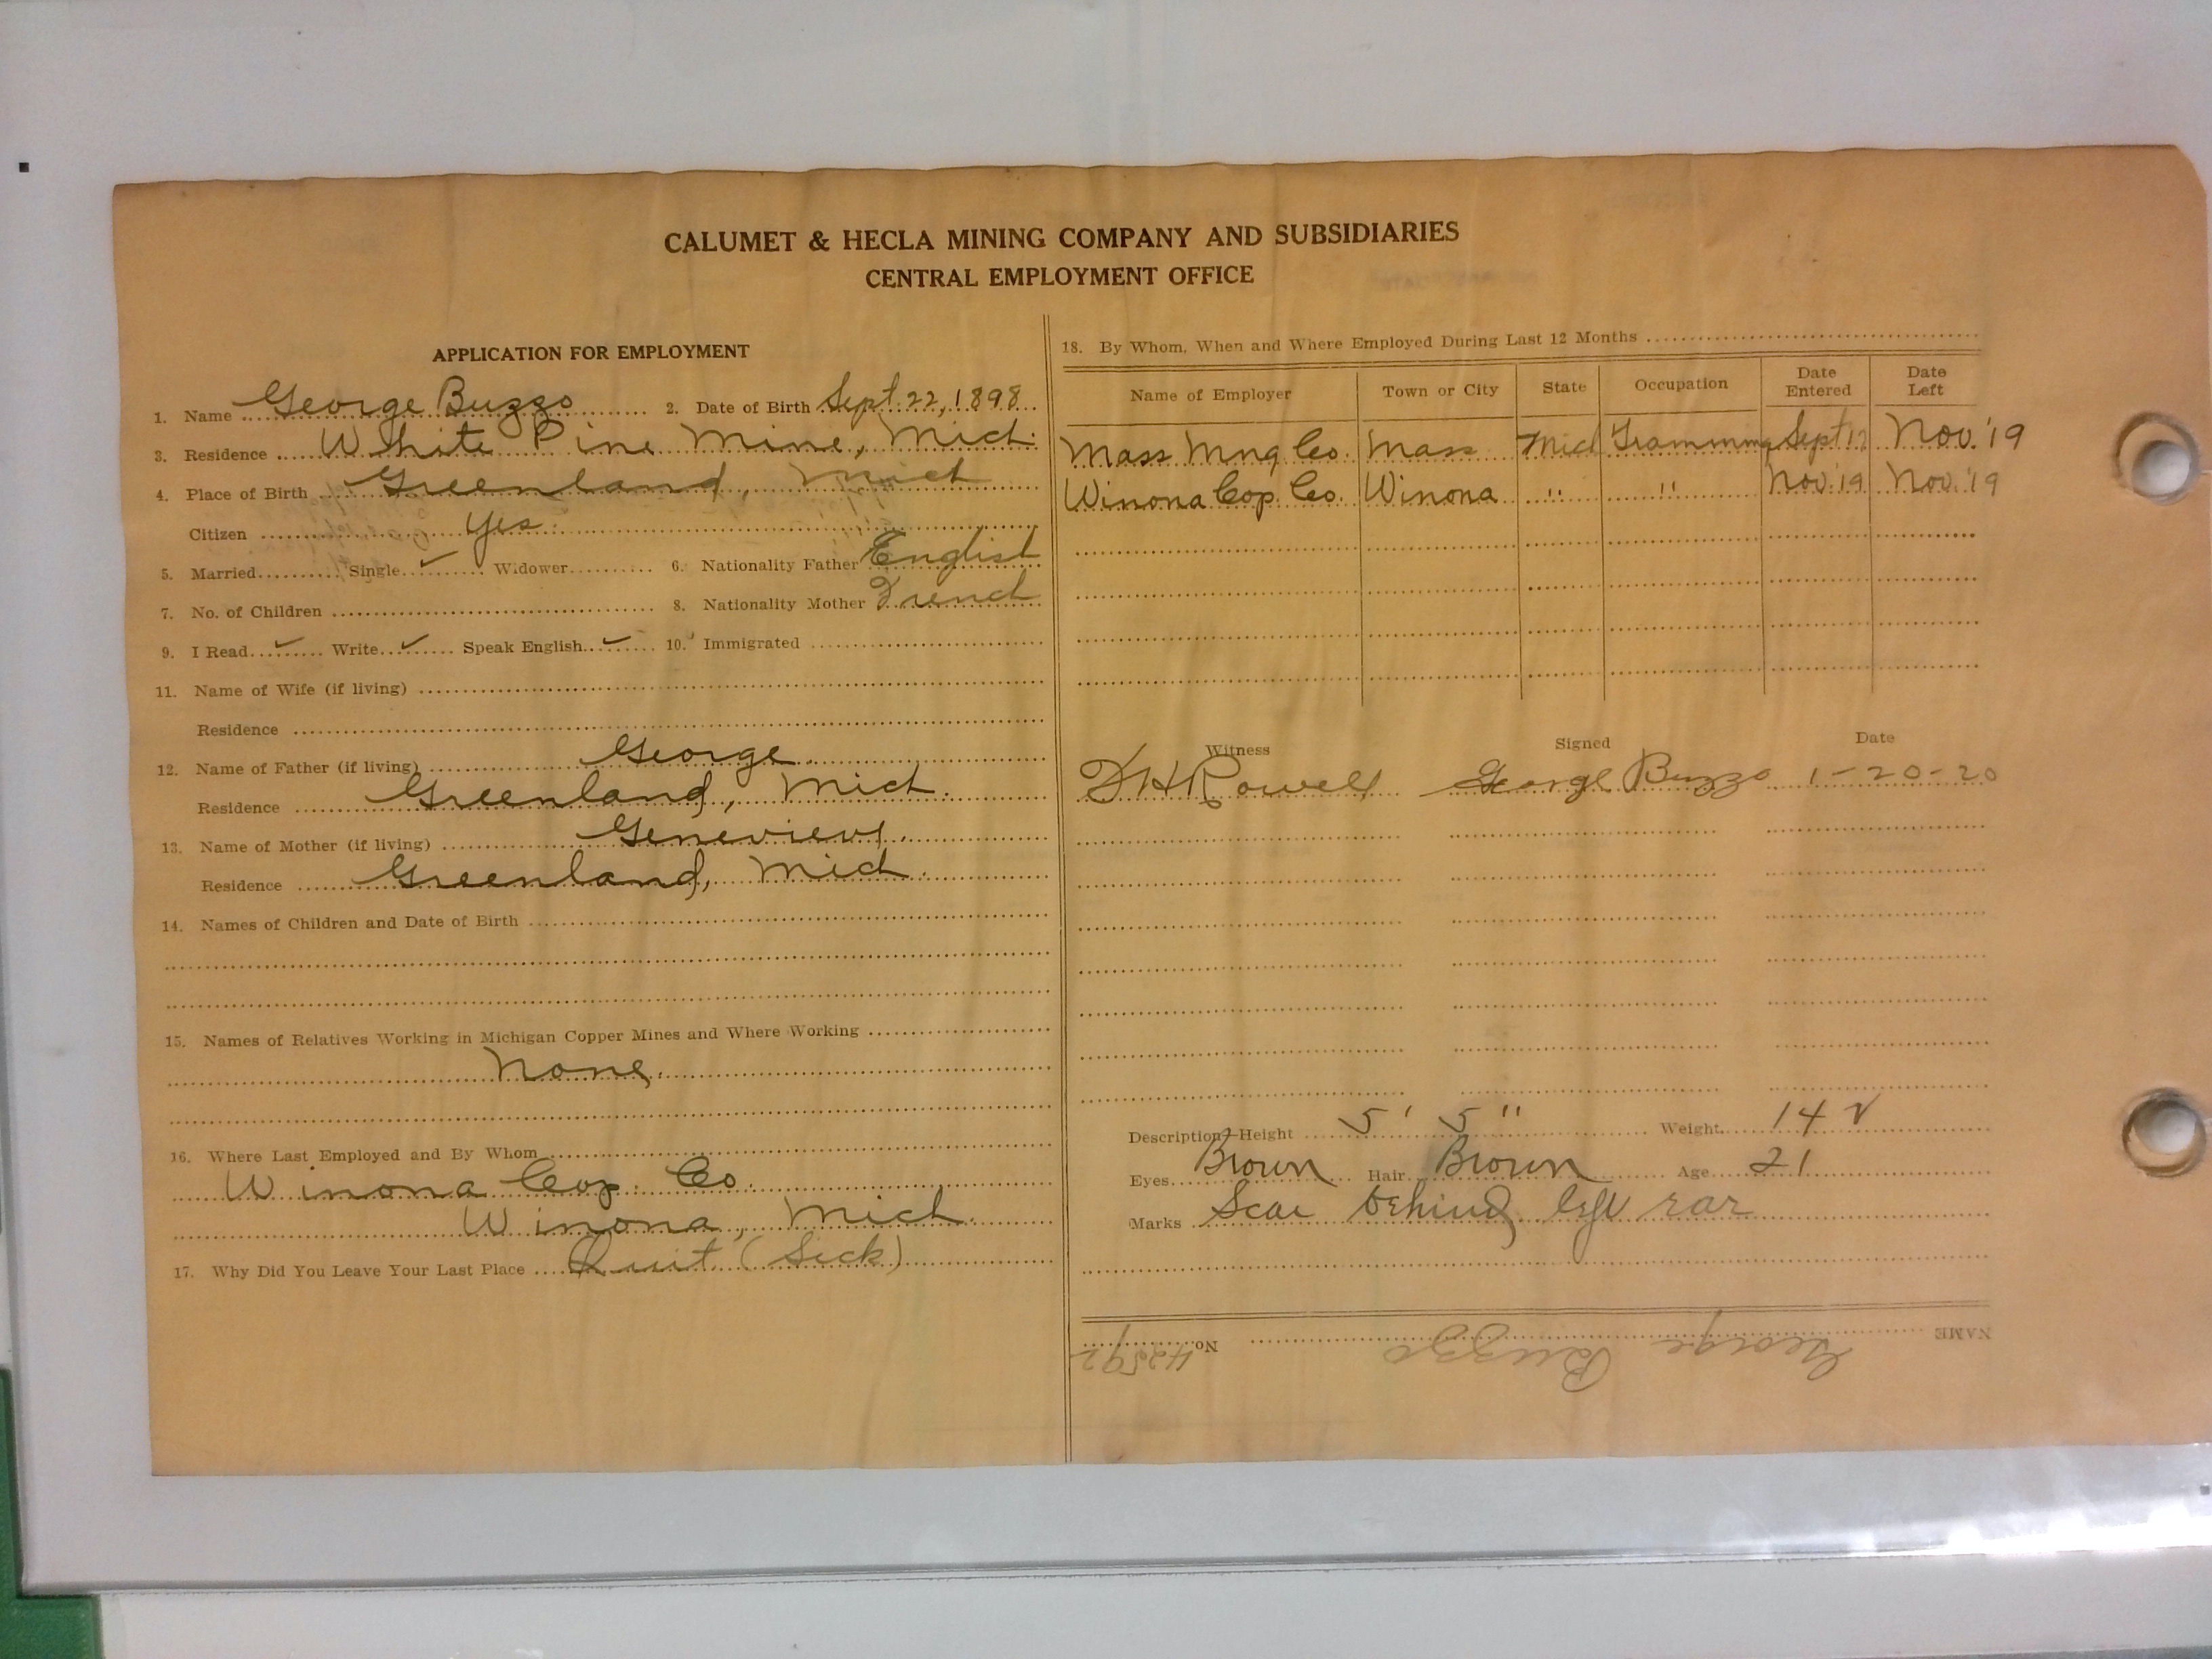 CALUMET & HECLA MINING COMPANY AND SUBSIDIARIES
CENTRAL EMPLOYMENT OFFICE
APPLICATION FOR EMPLOYMENT
1. Name George Buzzo 2. Date of Birth Sept. 22, 1898
3. Residence White Pine Mine, Mich.
4. Place of Birth Greenland, Mich
Citizen Yes.
5. Married Single ✓ Widower 6. Nationality Father English
7. No. of Children 8. Nationality Mother French
9. I Read ✓ Write ✓ Speak English ✓ 10. Immigrated
11. Name of Wife (if living)
Residence
12. Name of Father (if living) George.
Residence Greenland, Mich.
13. Name of Mother (if living) Genevieve.
Residence Greenland, Mich.
14. Names of Children and Date of Birth
15. Names of Relatives Working in Michigan Copper Mines and Where Working
None.
16. Where Last Employed and By Whom
Winona Cop. Co.
Winona, Mich.
17. Why Did You Leave Your Last Place Quit (Sick)
18. By Whom, When and Where Employed During Last 12 Months
Name of Employer Town or City State Occupation Date Entered Date Left
Mass Mng Co. Mass Mich Tramming Sept Nov. '19
Winona Cop. Co. Winona " " Nov. 19 Nov. '19
Witness Signed Date
Rowell George Buzzo 1-20-20
Description—Height 5' 5" Weight 142
Eyes Brown Hair Brown Age 21
Marks Scar behind left ear
NAME George Buzzo No. 42592